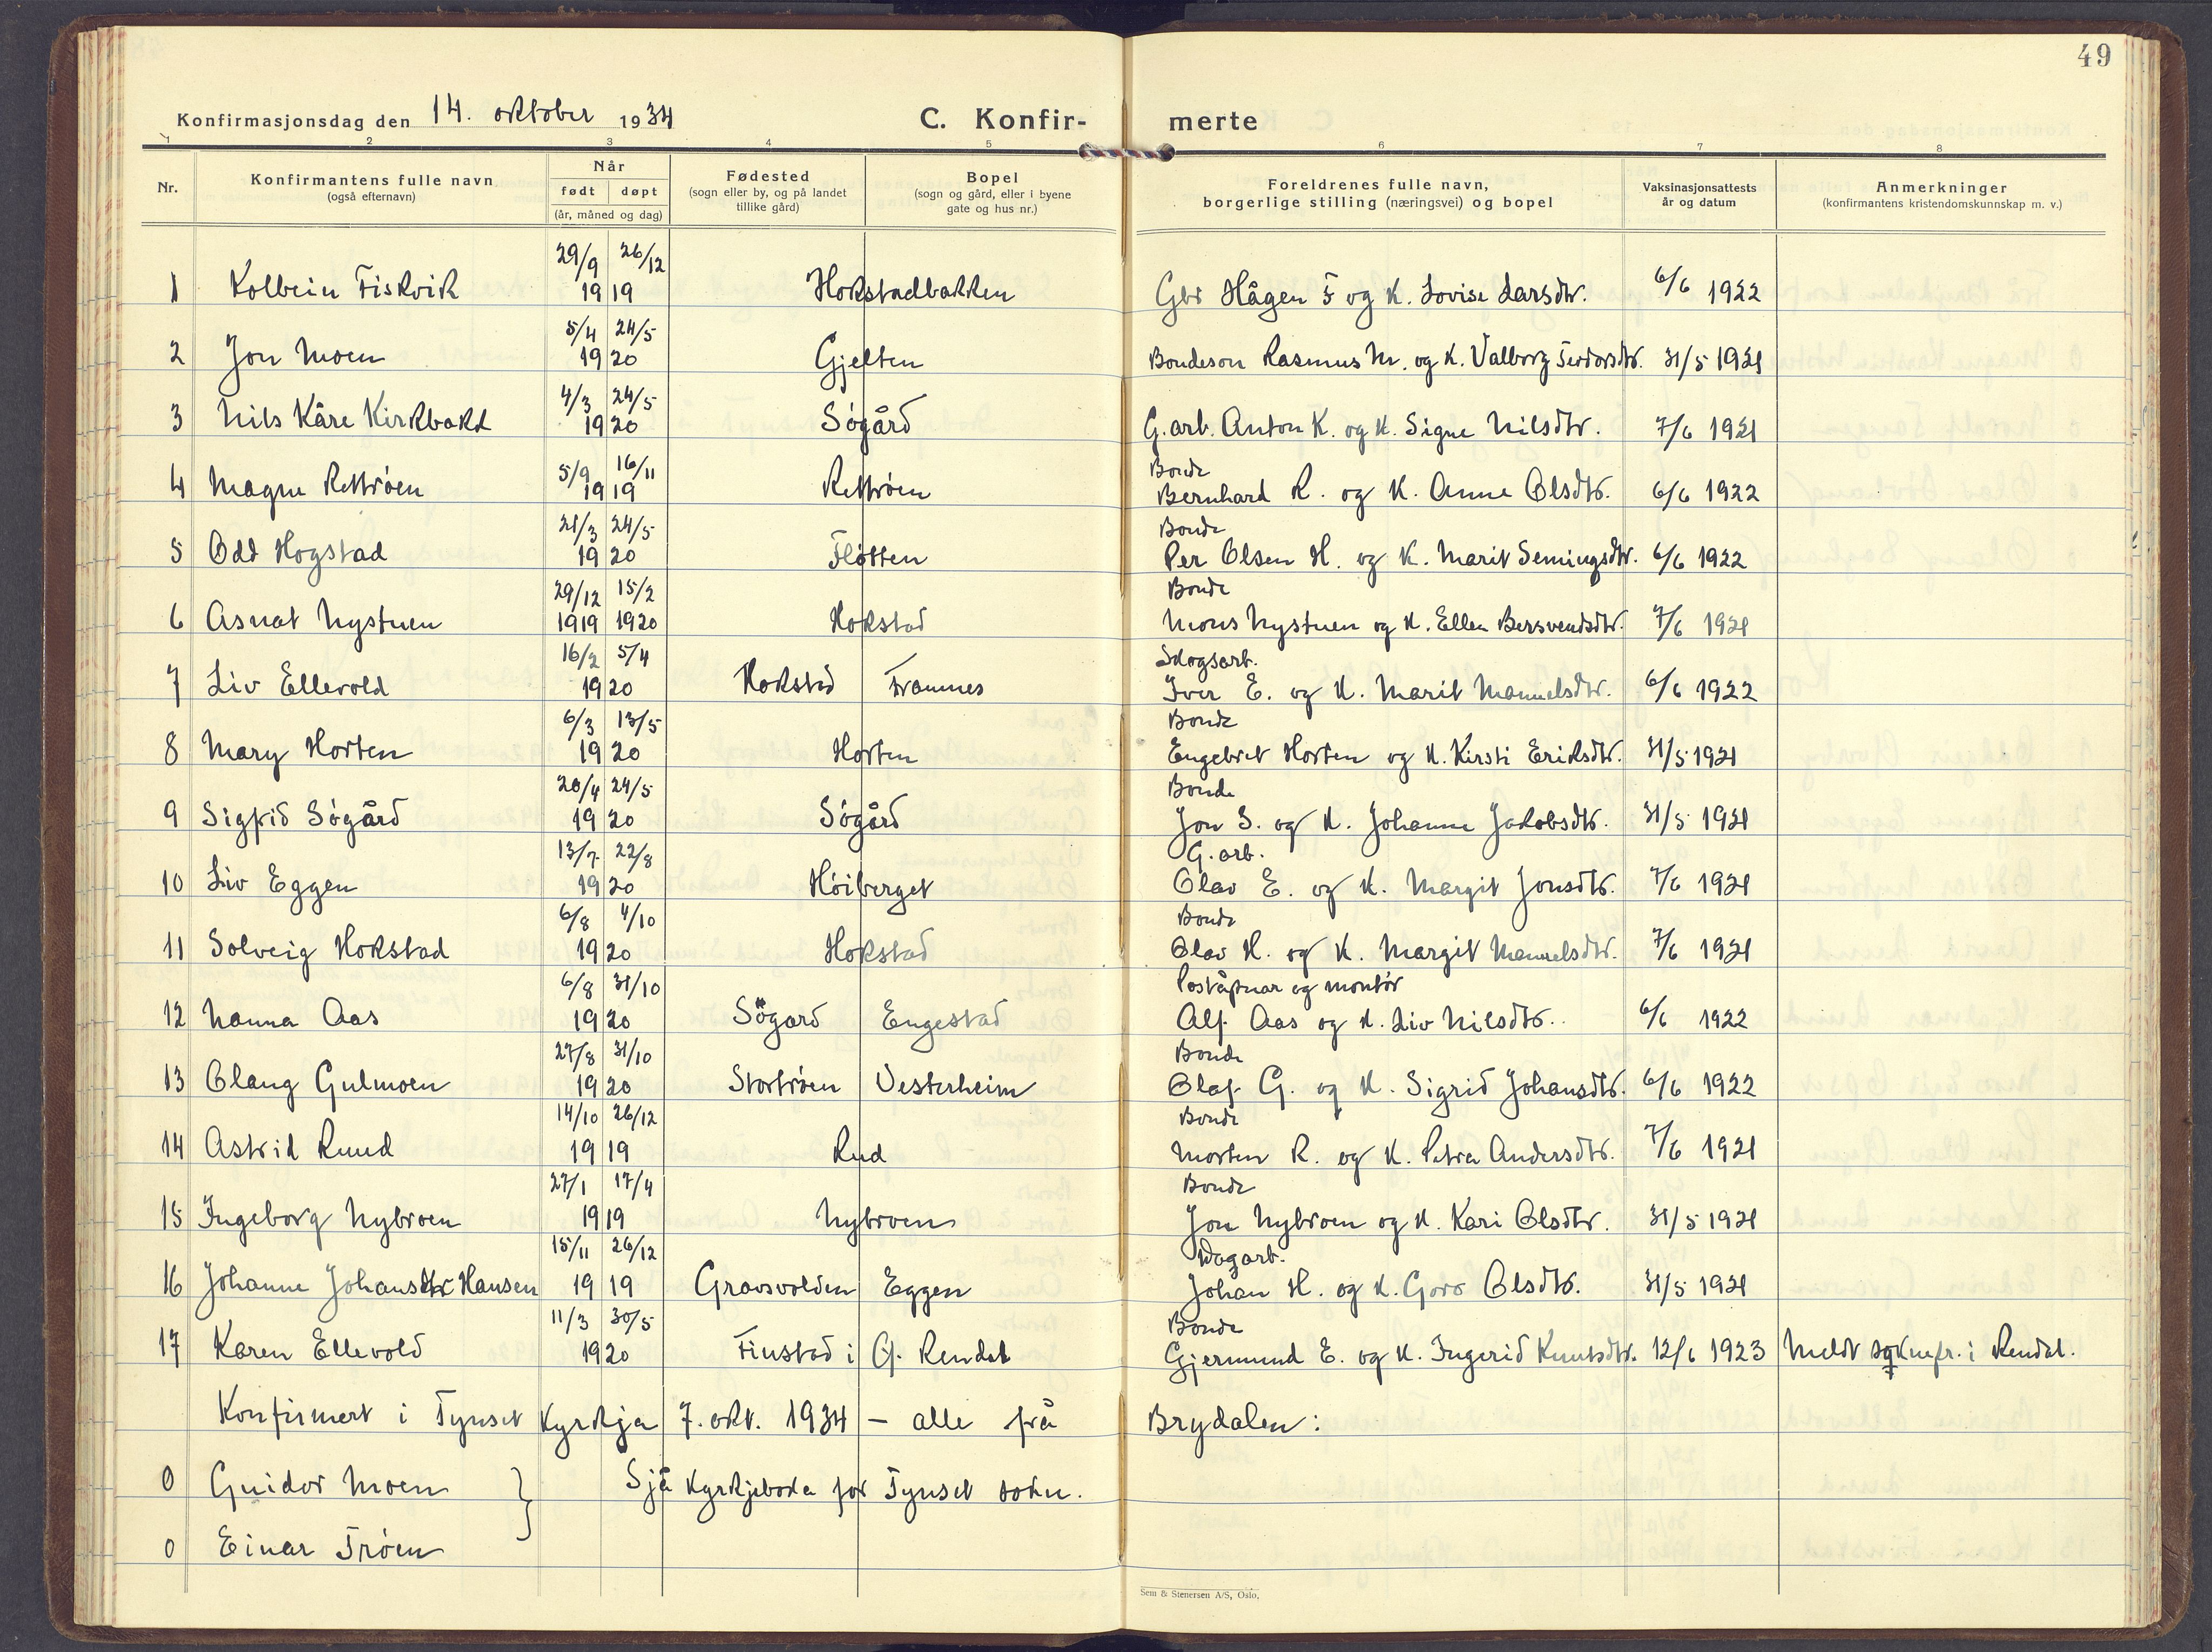 49
Konfirmasjonsdag den 14. oktober 1934
C. Konfir-merte
1 2 3 4 5 6 7 8
Nr.
Konfirmantens fulle navn
(også efternavn)
Når
født døpt
(år, måned og dag)
Fødested
(sogn eller by, og på landet
tillike gård)
Bopel
(sogn og gård, eller i byene
gate og hus nr.)
Foreldrenes fulle navn,
borgerlige stilling (næringsvei) og bopel
Vaksinasjonsattests
år og datum
Anmerkninger
(konfirmantens kristendomskunnskap m. v.)
29/9 26/12
1 Kolbein Fiskvik 1919 Hokstadbakken Gbr Hågen F og K. Lovise Larsdtr. 6/6 1922
5/4 24/5
2 Jon Moen 1920 Gjelten Bondeson Rasmus M. og K. Valborg 31/5 1921
4/3 24/5
3 Nils Kåre Kirkbakk 1920 Søgård G.arb. Anton K. og K. Signe Nilsdtr. 7/6 1921
5/9 16/11 Bonde
4 Magne Rettrøen 1919 Rettrøen Bernhard R. og K. Anne Olsdtr. 6/6 1922
21/3 24/5 Bonde
5 Odd Hogstad 1920 Fløtten Per Olsen H. og K. Marit Semingsdtr. 6/6 1922
29/12 15/2 Bonde
6 Asnat Nystuen 1919 1920 Hokstad Mons Nystuen og K. Ellen Bersvendsdtr. 7/6 1921
16/2 5/4 Skogsarb.
7 Liv Ellevold 1920 Hokstad Framnes Iver E. og K. Marit Manuelsdtr. 6/6 1922
6/3 13/5 Bonde
8 Mary Horten 1920 Horten Engebret Horten og K. Kirsti Eriksdtr. 31/5 1921
20/4 24/5 Bonde
9 Sigfrid Søgård 1920 Søgård Jon S. og K. Johanne Jakobsdtr. 31/5 1921
13/7 22/8 G.arb.
10 Liv Eggen 1920 Høiberget Olav E. og K. Margit Jonsdtr. 7/6 1921
6/8 4/10 Bonde
11 Solveig Hokstad 1920 Hokstad Olav H. og K. Margit Manuelsdtr. 7/6 1921
6/8 31/10 Poståpnar og montør
12 Nanna Aas 1920 Søgard Engestad Alf Aas og K. Liv Nilsdtr. 6/6 1922
27/8 31/10 Bonde
13 Olaug Gulmoen 1920 Stortrøen Vesterheim Olaf G. og K. Sigrid Johansdtr. 6/6 1922
14/10 26/12 Bonde
14 Astrid Ruud 1919 Rud Morten R. og K. Petra Andersdtr. 7/6 1921
27/1 17/4 Bonde
15 Ingeborg Nybroen 1919 Nybroen Jon Nybroen og K. Kari Olsdtr. 31/5 1921
15/11 26/12
16 Johanne Johansdtr Hansen 1919 Gravsvolden Eggen Johan H. og K. Goro Olsdtr. 31/5 1921
11/3 30/5 Bonde
17 Karen Ellevold 1920 Finstad i Ø. Rendal Gjermund E. og K. Ingerid Knutsdtr. 12/6 1923 Meldt soknepr. i Rendal.
Konfirmert i Tynset Kyrkja 7. okt. 1934 – alle frå Brydalen:
0 Guidor Moen } Sjå Kyrkjeboka for Tynset sokn.
0 Einar Trøen
Sem & Stenersen A/S, Oslo.